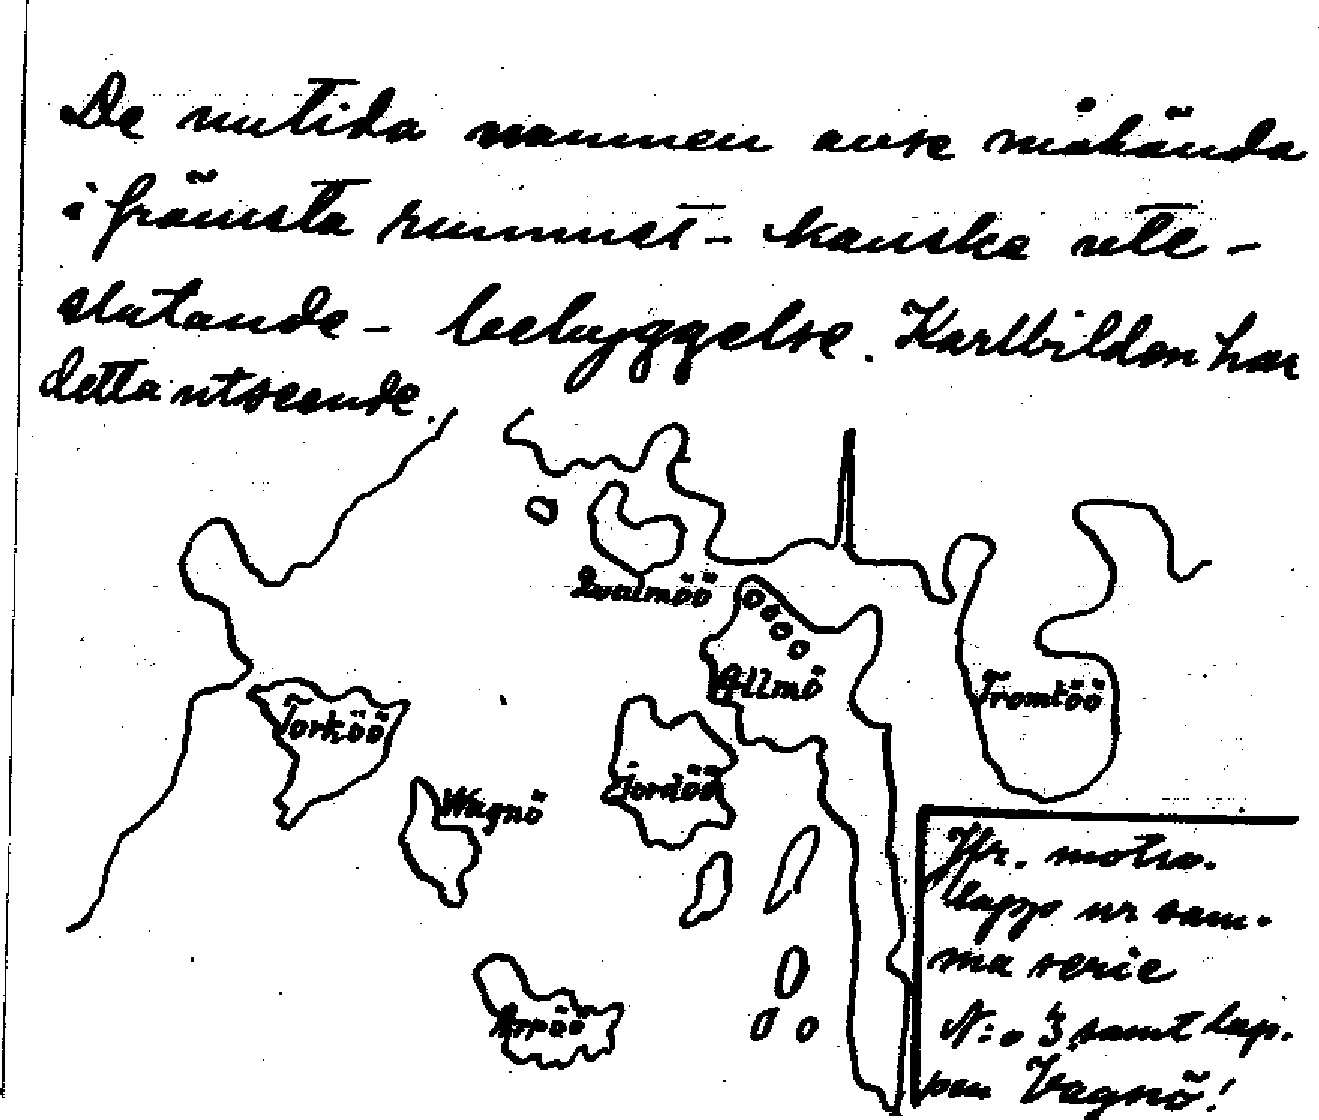 De nutida namnen avse måhända
i främsta rummet - kanske ute -
slutande - bebyggelse. Kartbilden har
detta utseende.
Qvalmöö
Allmö
Tromtöö
Torköö
Giordöö
Wagnö
Arpöö
Jfr. motsv.
lapp ur sam-
ma serie
N:o 3 samt lap-
pen Vagnö!